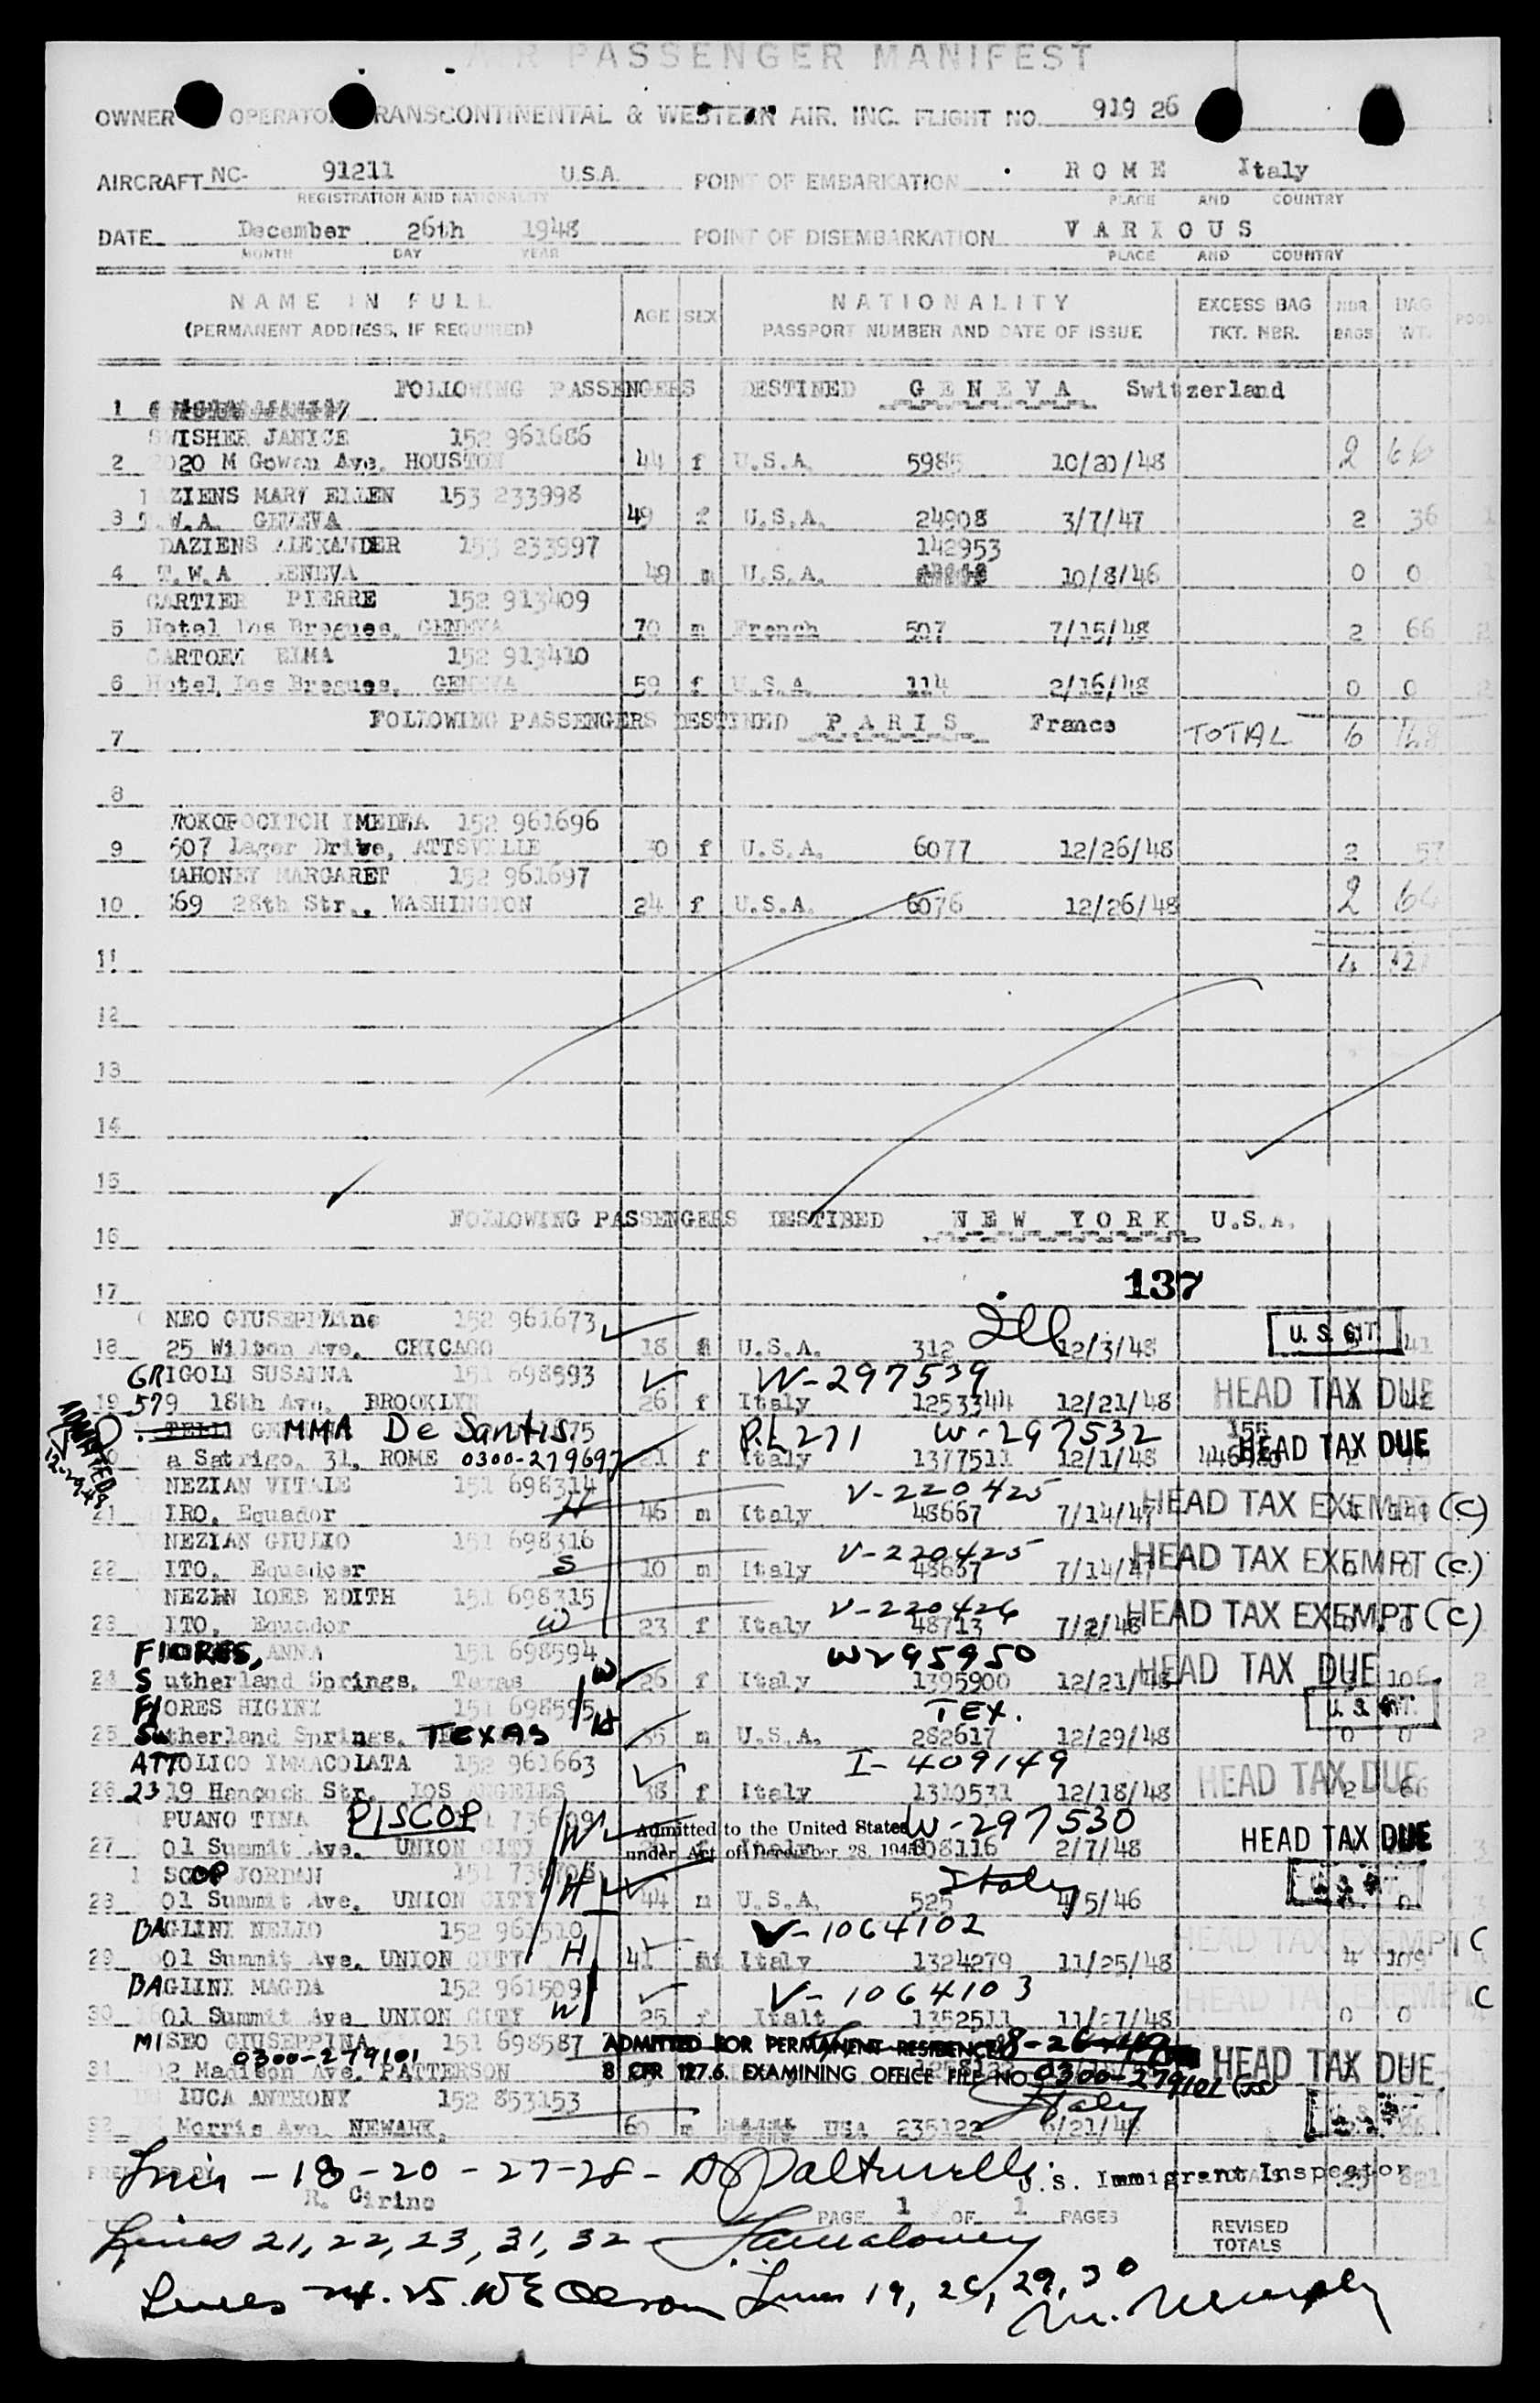 AIR PASSENGER MANIFEST
OWNER OPERATOR TRANSCONTINENTAL & WESTERN AIR. INC. FLIGHT NO. 919 26
AIRCRAFT NC- 91211 U.S.A. POINT OF EMBARKATION R O M E Italy
REGISTRATION AND NATIONALITY PLACE AND COUNTRY
DATE December 26th 1948 POINT OF DISEMBARKATION V A R I O U S
MONTH DAY YEAR PLACE AND COUNTRY
NAME IN FULL AGE SEX NATIONALITY EXCESS BAG NBR BAG
(PERMANENT ADDRESS, IF REQUIRED) PASSPORT NUMBER AND DATE OF ISSUE TKT. NBR. BAGS WT.
FOLLOWING PASSENGERS DESTINED G E N E V A Switzerland
1
SWISHER JANICE 152 961686
2 020 M Gowan Ave. HOUSTON 44 f U.S.A. 5985 10/20/48 2 66
ZIENS MARY ELLEN 153 233998
3 T.W.A. GENEVA 49 f U.S.A. 24908 3/7/47 2 36
DAZIENS ALEXANDER 153 233997 142953
4 T.W.A GENEVA 49 m U.S.A. 10/8/46 0 0
CARTIER PIERRE 152 913409
5 Hotel Des Bregues, GENEVA 70 m French 507 7/15/48 2 66
CARTOEM 152 913410
6 Hotel Des Bregues, GENEVA 59 f U.S.A. 114 2/16/48 0 0
FOLLOWING PASSENGERS DESTINED P A R I S France
7 TOTAL 6 168
8
ROKOPOCITCH IMEDEA 152 961696
9 507 Lager Drive, ATTSVILLE 30 f U.S.A. 6077 12/26/48 2 57
MAHONEY MARGARET 152 961697
10 69 28th Str., WASHINGTON 24 f U.S.A. 6076 12/26/48 2 64
11 4 121
12
13
14
15
FOLLOWING PASSENGERS DESTIBED N E W Y O R K U.S.A.
16
17 137
NEO GIUSEPPINE 152 961673 Ill
18 25 Wilson Ave. CHICAGO 18 U.S.A. 312 12/3/48 U. S. CIT. 41
GRIGOLI SUSANNA 151 698593 W-297539
19 579 18th Ave. BROOKLYN 26 f Italy 1253344 12/21/48 HEAD TAX DUE
MMA De Santis 75 P.L 271 W-297532 155
20 a Satrigo, 31, ROME 0300-279697 21 f Italy 1377511 12/1/48 HEAD TAX DUE
ADMITTED
NEZIAN VITALE 151 698314 V-220425
21 IRO, Equador H 46 m Italy 48667 7/14/47 HEAD TAX EXEMPT (C)
NEZIAN GIULIO 151 698316 V-220425
22 ITO, Equadcer S 10 m Italy 48667 7/14/47 HEAD TAX EXEMPT (C)
NEZIN IOES EDITH 151 698315 V-220426
23 ITO, Equador W 23 f Italy 48713 7/2/48 HEAD TAX EXEMPT (C)
FIORES, ANNA 151 698594 W295950
24 Sutherland Springs, Texas W 26 f Italy 1395900 12/21/48 HEAD TAX DUE 106
FIORES HIGINI 151 698595 TEX.
25 Sutherland Springs, TEXAS H 35 m U.S.A. 282617 12/29/48 U. S. CIT. 0 0
ATTOLICO IMMACOLATA 152 961663 I-409149
26 2319 Hancock Str. LOS ANGELES 38 f Italy 1310531 12/18/48 HEAD TAX DUE 2 66
PUANO TINA PISCOP W-297530
Admitted to the United States
27 01 Summit Ave. UNION CITY W f Italy 08116 2/7/48 HEAD TAX DUE
under Act of December 28, 1945
SCOP JORDAN Italy
28 01 Summit Ave. UNION CITY H 44 m U.S.A. 525 4/5/46
BAGLINI NELLO 152 961510 V-1064102
29 01 Summit Ave. UNION CITY H 41 Italy 1324279 11/25/48 HEAD TAX EXEMPT C 4 109
BAGLINI MAGDA 152 961509 V-1064103
30 01 Summit Ave UNION CITY W 25 f Italt 1352511 11/27/48 HEAD TAX EXEMPT C 0 0
MISEO GIUSEPPINA 151 698587 ADMITTED FOR PERMANENT RESIDENCE 8-26-49
0300-279101
31 2 Madison Ave. PATTERSON 8 CFR 127.6. EXAMINING OFFICE FILE NO. 0300-279101 (JS) HEAD TAX DUE
LUCA ANTHONY 152 853153 Italy
32 Morris Ave. NEWARK. 60 m USA 235122 6/21/48
Lines - 18 - 20 - 27-28 - U.S. Immigrant Inspector
PREPARED BY
R. Cirino
PAGE 1 OF 1 PAGES
REVISED
TOTALS
Lines 21, 22, 23, 31, 32
Lines 24. 25. W E Olson Lines 19, 26, 29, 30
M. Murphy